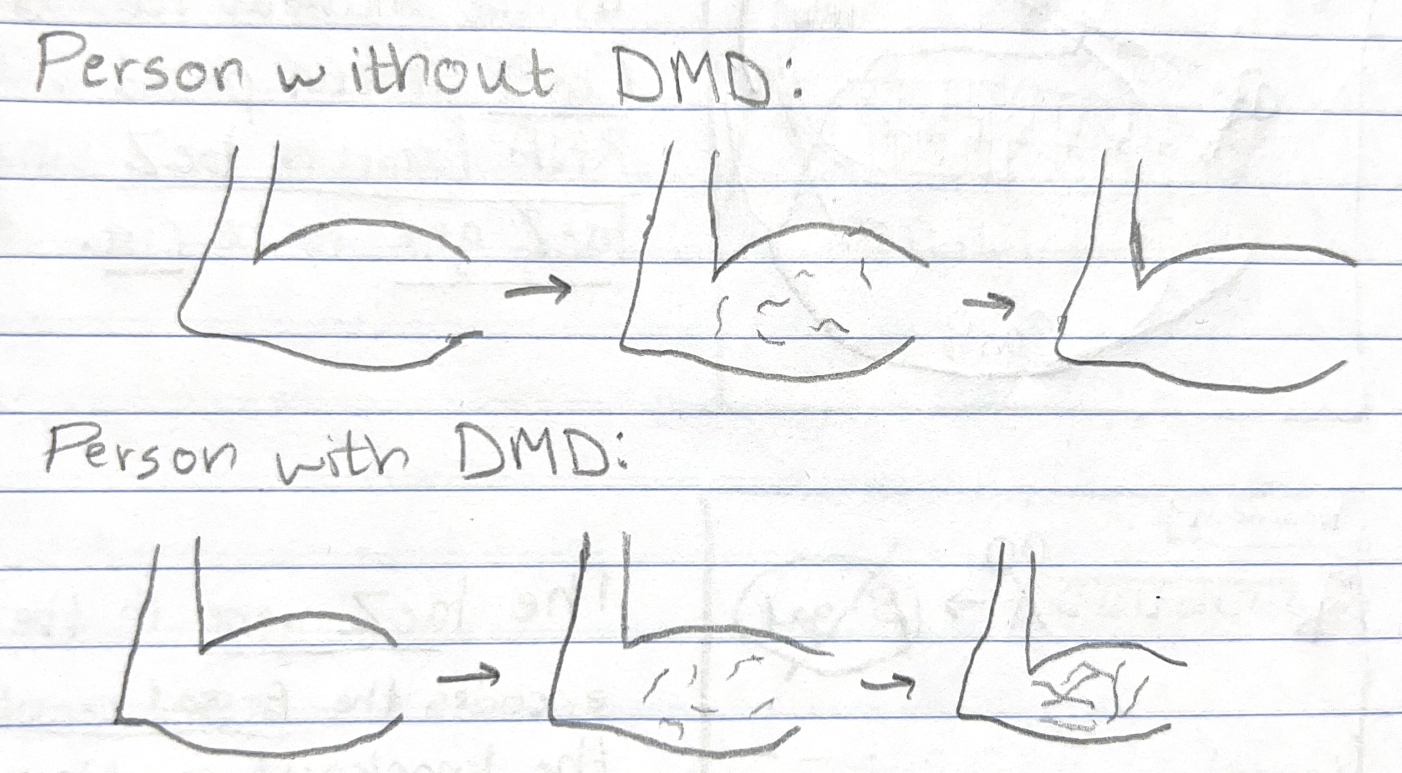 Person without DMD:
Person with DMD: